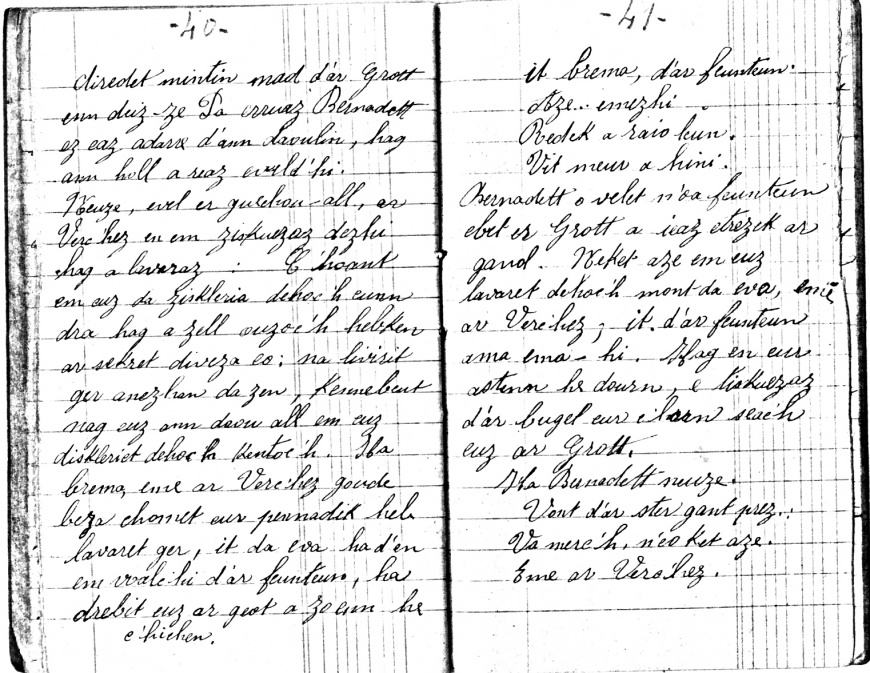 -40-
diredet mintin mad d'ar Grott
enn deiz-ze Pa erruaz Bernadett
ez eaz adarre d'ann daoulin, hag
ann holl a reaz eveld'hi.
Neuze, evel er gwechou-all, ar
Verc'hez en em ziskuezaz dezhi
hag a lavaraz : C'hoant
em euz da ziskleria dehoc'h eunn
dra hag a zell ouzoc'h hebken
ar sekret diveza eo; na livirit
ger anezhan da zen, kennebeut
hag euz ann daou all em euz
diskleriet dehoc'h kentoc'h. Ha
brema, eme ar Verc'hez goude
beza chomet eur pennadik heb
lavaret ger, it da eva ha d'en
em walc'hi d'ar feunteun, ha
drebit euz ar geot a zo enn he
c'hichen.
-41-
it brema, d'ar feunteun.
Aze.. emezhi
Redek a raio leun.
Vit meur a hini.
Bernadett o velet n'oa feunteun
ebet er Grott a ieaz etrezek ar
gand. Neket aze em euz
lavaret dehoc'h mont da eva, emē
ar Verc'hez; it. d'ar feunteun
ama ema-hi. Hag en eur
astenn he dourn, e tiskuezaz
d'ar bugel eur c'harn seac'h
euz ar Grott.
Ha Bernadett neuze.
Vont d'ar ster gant prez.:
Va merc'h, n'eo ket aze.
Eme ar Verc'hez.